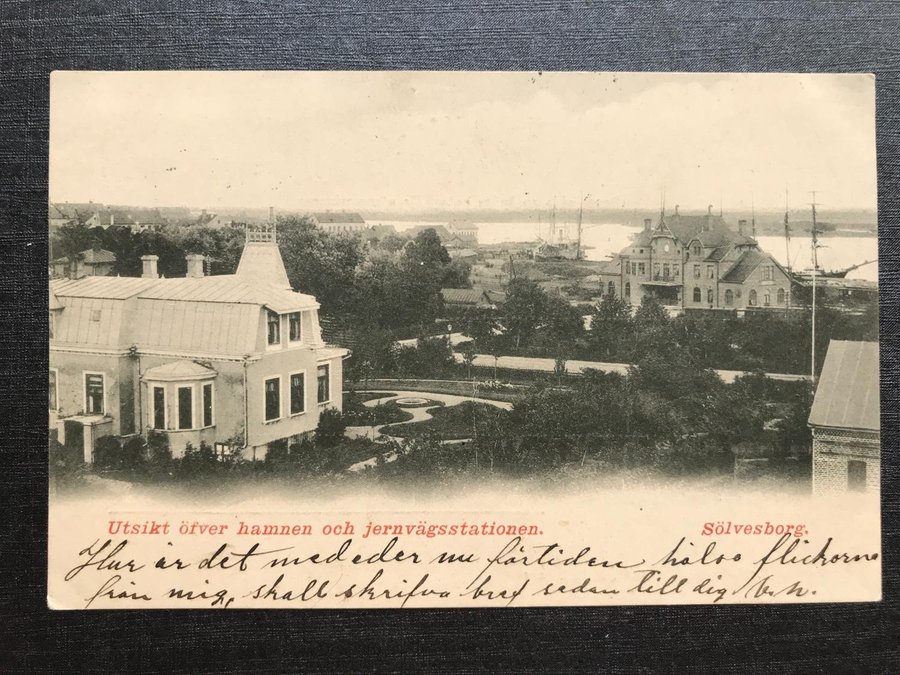 Utsikt öfver hamnen och jernvägsstationen. Sölvesborg.
Hur är det med eder nu förtiden hälsa flickorna
från mig, skall skrifva bref sedan till dig